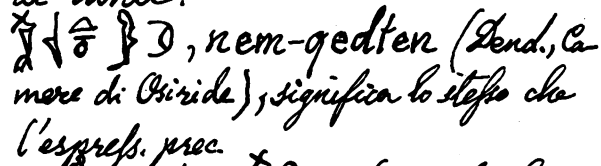 , nem-qedten (Dend., Ca-
mere di Osiride), significa lo stesso che
l'espress. prec.